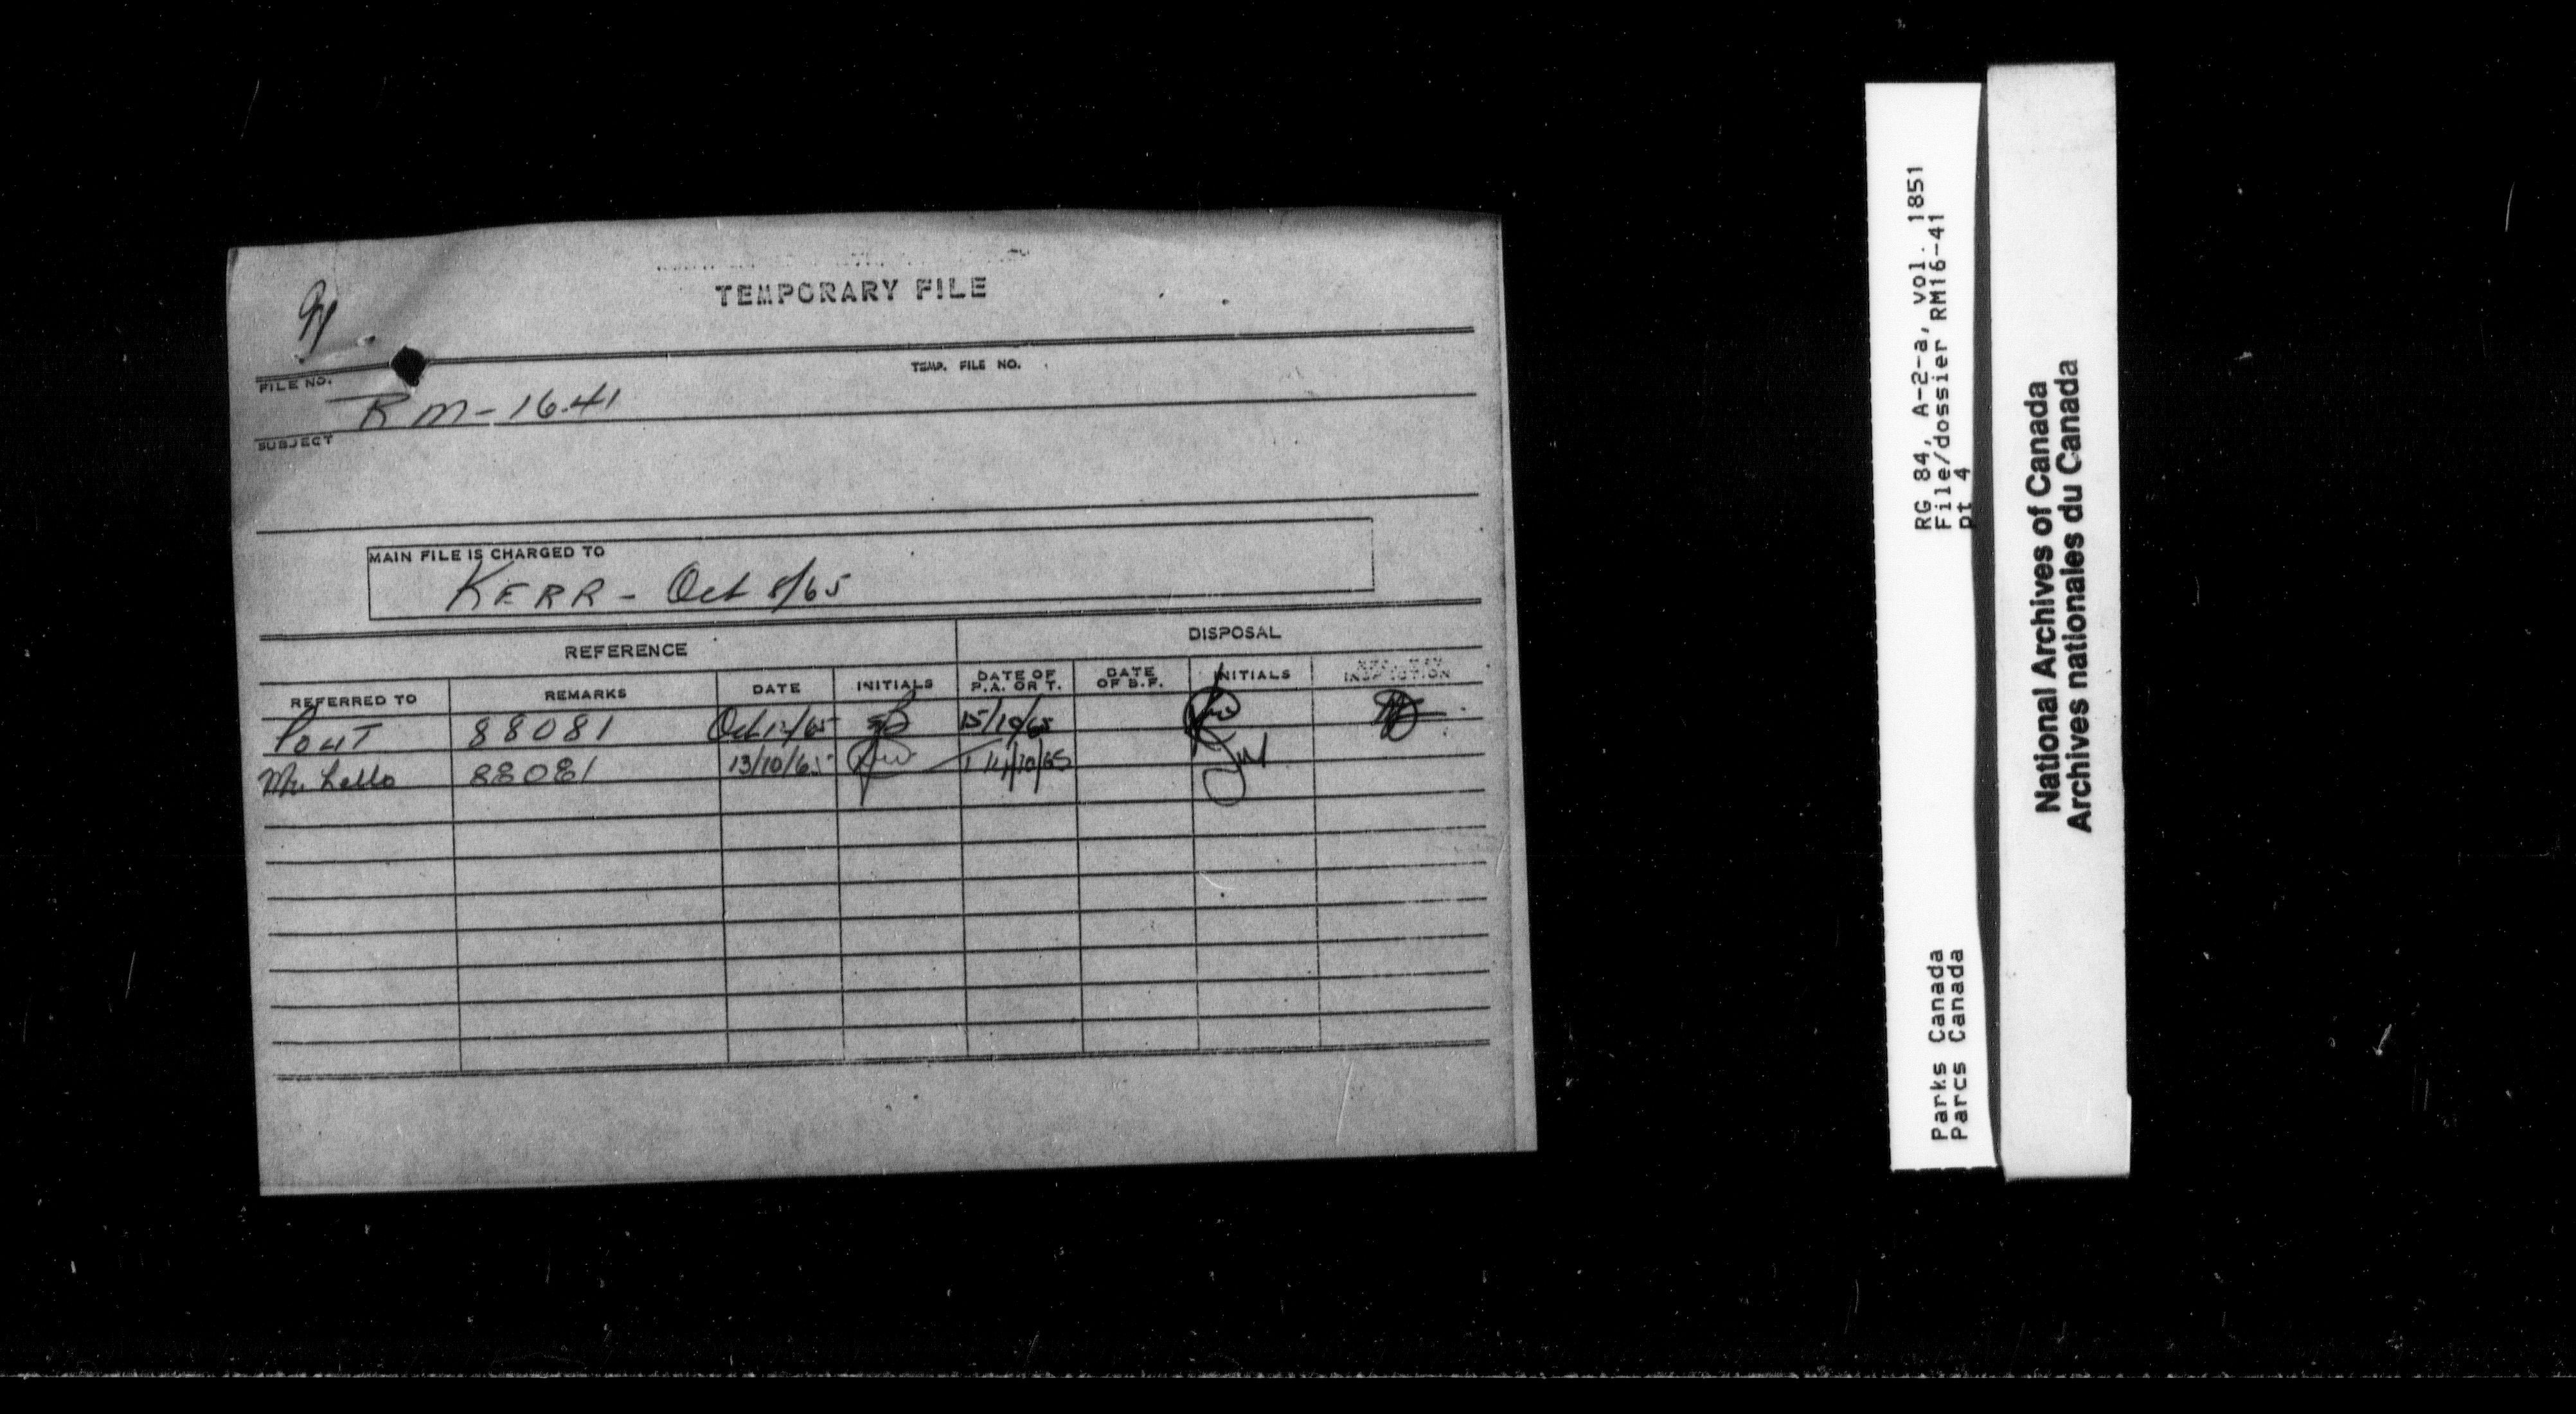 TEMPORARY FILE
FILE NO.
TEMP. FILE NO.
RM-16-41
SUBJECT
MAIN FILE IS CHARGED TO
KERR - Oct 8/65
REFERENCE
DISPOSAL
REFERRED TO REMARKS DATE INITIALS DATE OF P.A. OR T. DATE OF B.F. INITIALS INSPECTION
88081 Oct 12/65 15/10/65
88081 13/10/65 T 14/10/65
RG 84, A-2-a, vol. 1851
File/dossier RM16-41
pt 4
Parks Canada
Parcs Canada
National Archives of Canada
Archives nationales du Canada